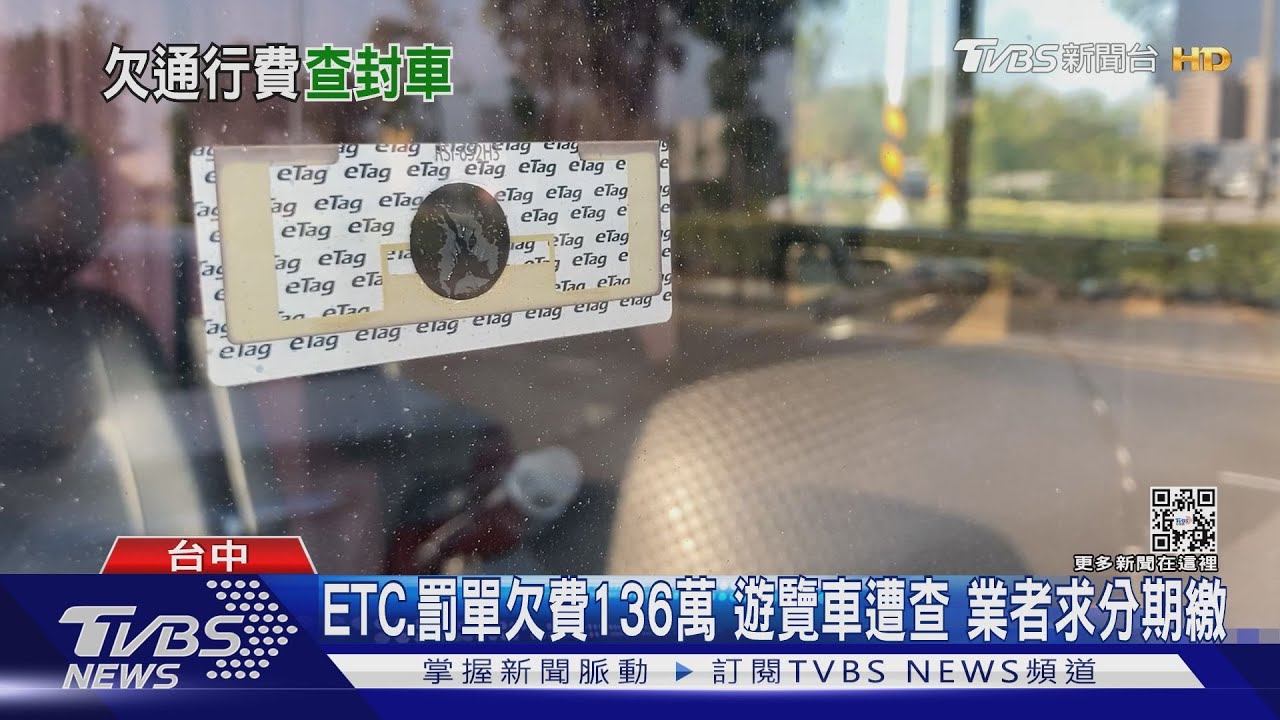 欠通行費查封車
TVBS新聞台 HD
eTag eTag eTag eTag eTag e
eTag eTag eTag eTag
eTag eTag eTag e
eTag eTag eTag eTag
eTag eTag eTag
eTag eTag eTag eTag eTag eTag eTag eTag
更多新聞在這裡
台中
TVBS NEWS
ETC.罰單欠費136萬 遊覽車遭查 業者求分期繳
掌握新聞脈動 ▶ 訂閱TVBS NEWS頻道